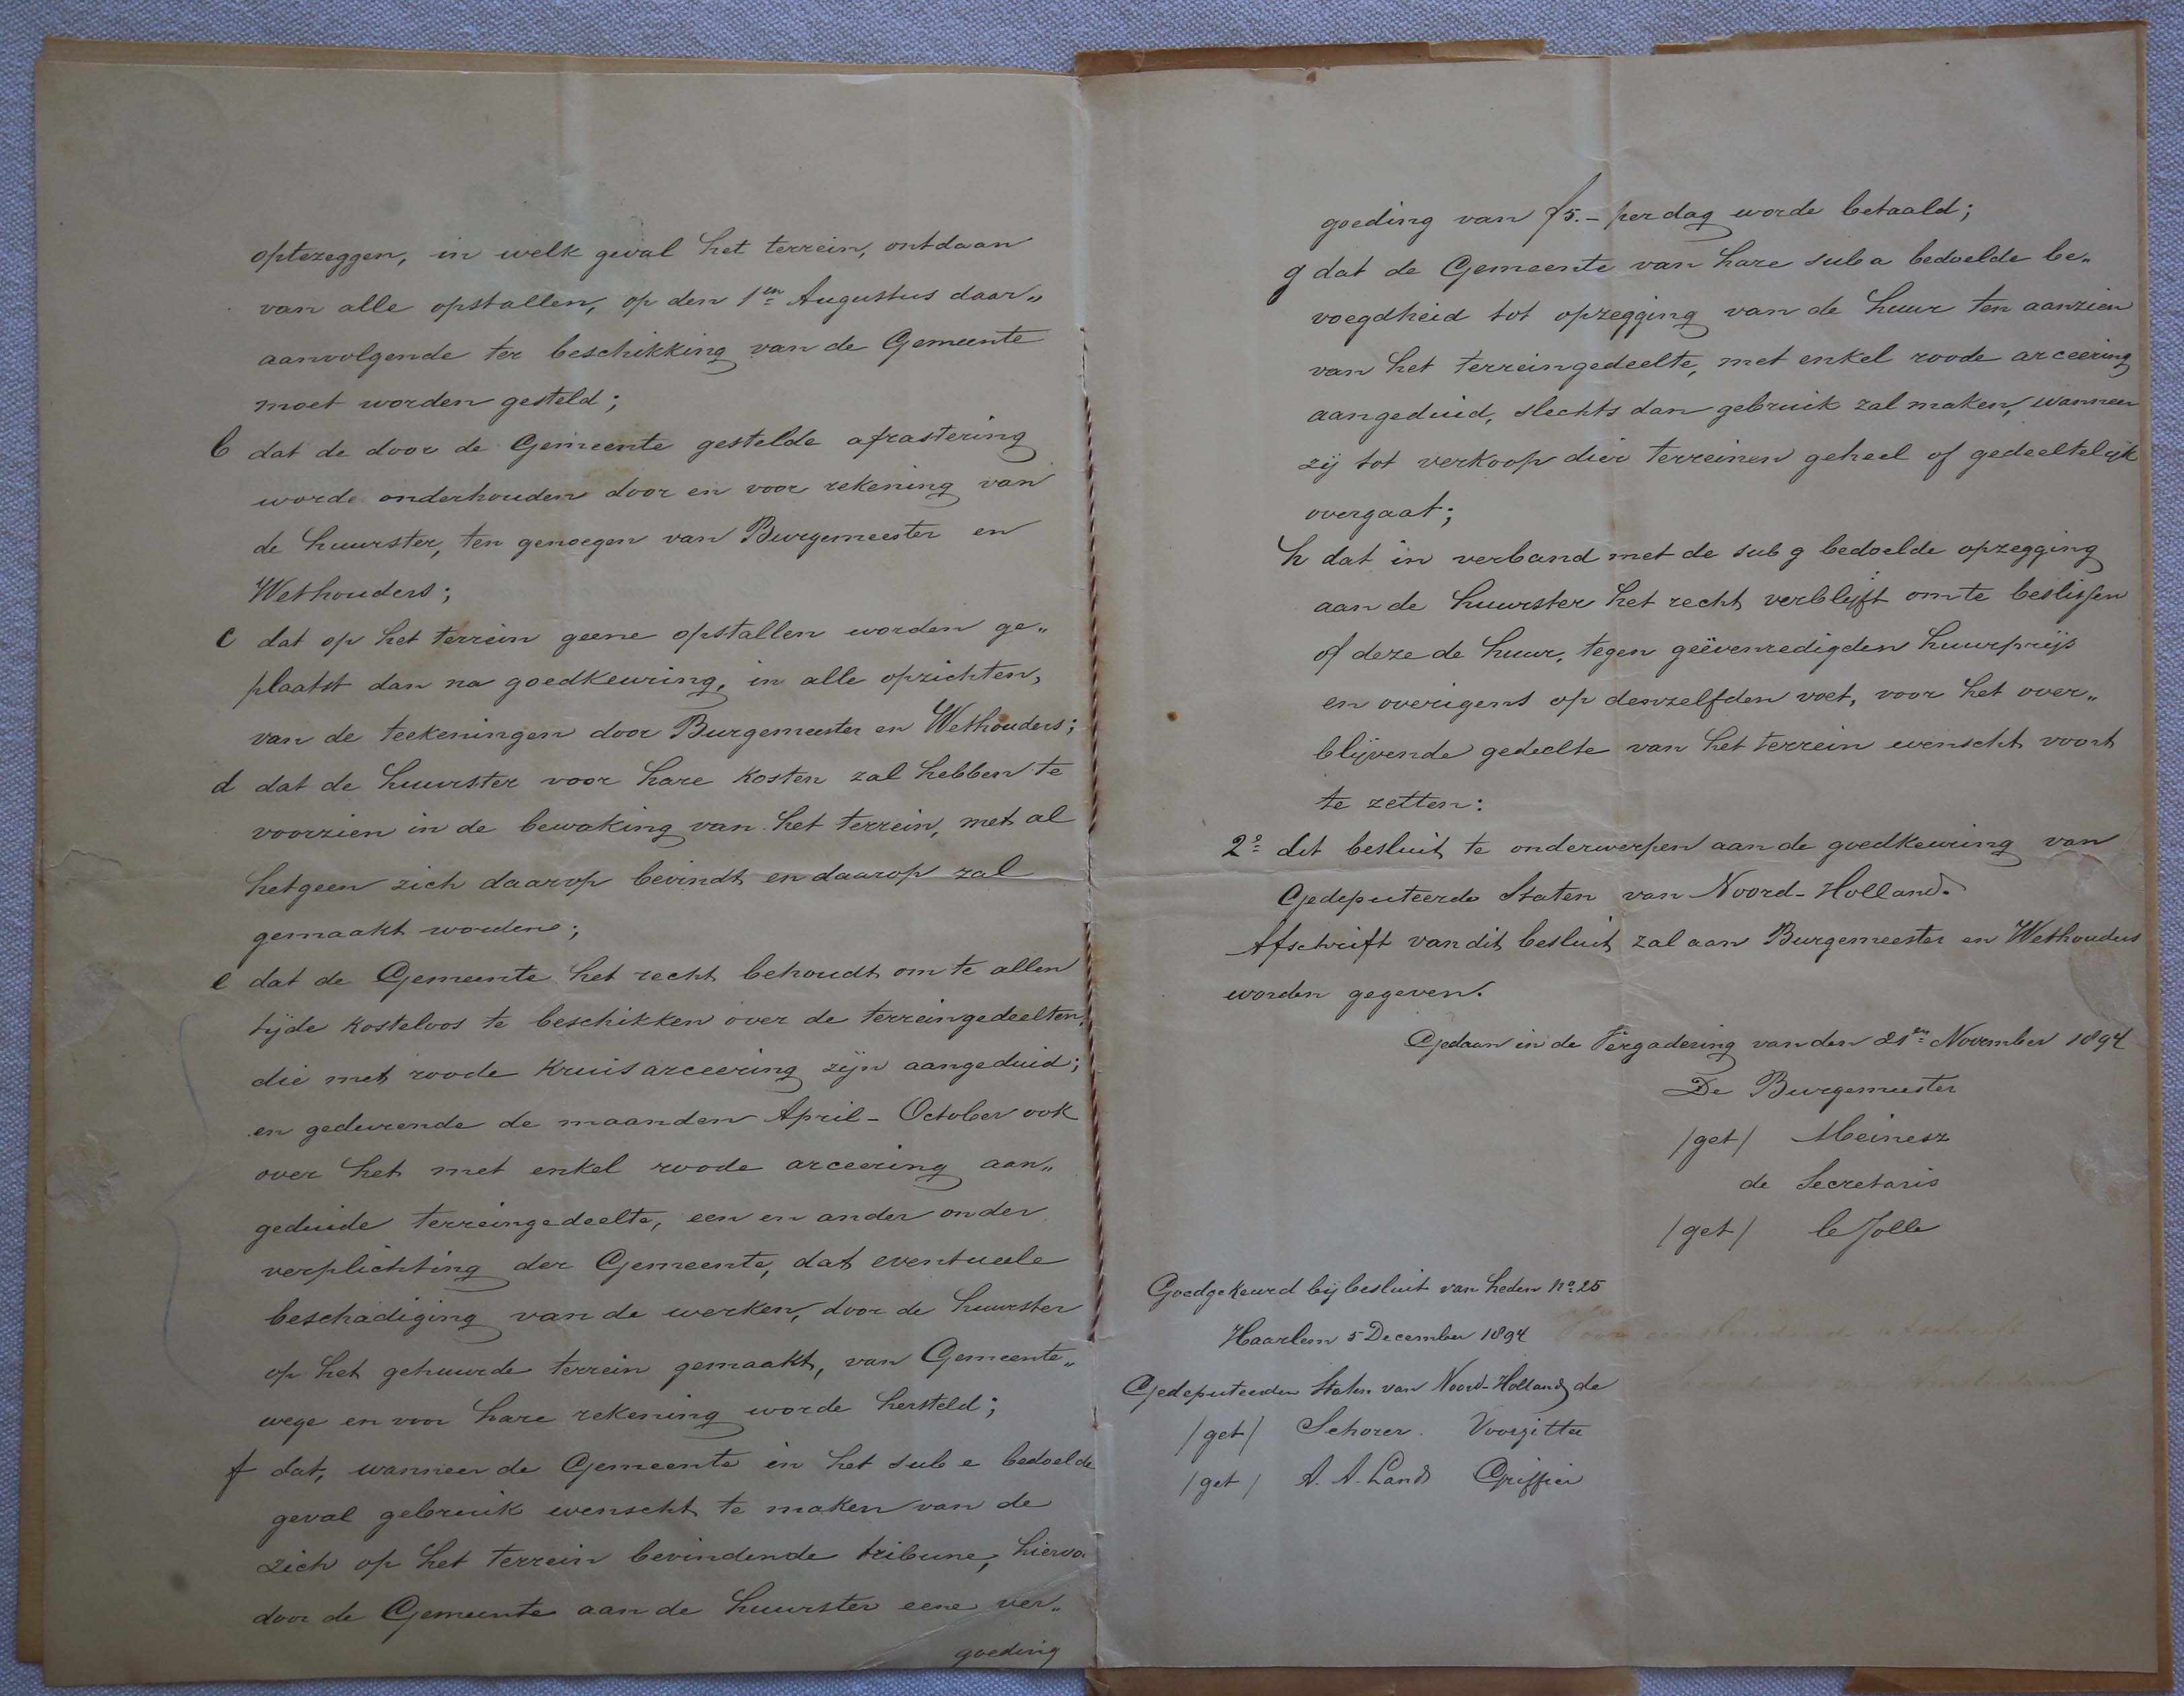 optezeggen, in welk geval het terrein, ontdaan
van alle opstallen, op den 1en Augustus daar„
aanvolgende ter beschikking van de Gemeente
moet worden gesteld;
b dat de door de Gemeente gestelde afrastering
worde onderhouden door en voor rekening van
de huurster, ten genoegen van Burgemeester en
Wethouders;
c dat op het terrein geene opstallen worden ge„
plaatst dan na goedkeuring, in alle opzichten,
van de teekeningen door Burgemeester en Wethouders;
d dat de huurster voor hare kosten zal hebben te
voorzien in de bewaking van het terrein, met al
hetgeen zich daarop bevindt en daarop zal
gemaakt worden;
e dat de Gemeente het recht behoudt om te allen
tijde kosteloos te beschikken over de terreingedeelten,
die met roode kruisarceering zijn aangeduid;
en gedurende de maanden April - October ook
over het met enkel roode arceering aan„
geduide terreingedeelte, een en ander onder
verplichting der Gemeente, dat eventueele
beschadiging van de werken, door de huurster
op het gehuurde terrein gemaakt, van Gemeente„
wege en voor hare rekening worde hersteld;
f dat, wanneer de Gemeente in het sub e bedoelde
geval gebruik wenscht te maken van de
zich op het terrein bevindende tribune, hiervo
door de Gemeente aan de huurster eene ver„
goeding
goeding van f5.- per dag worde betaald;
g dat de Gemeente van hare sub a bedoelde be„
voegdheid tot opzegging van de huur ten aanzien
van het terreingedeelte, met enkel roode arceering
aangeduid, slechts dan gebruik zal maken, wanneer
zij tot verkoop dier terreinen geheel of gedeeltelijk
overgaat;
h dat in verband met de sub g bedoelde opzegging
aan de huurster het recht verblijft om te beslissen
of deze de huur, tegen geëvenredigden huurprijs
en overigens op denzelfden voet, voor het over„
blijvende gedeelte van het terrein wenscht voort
te zetten:
2o dit besluit te onderwerpen aan de goedkeuring van
Gedeputeerde Staten van Noord-Holland.
Afschrift van dit besluit zal aan Burgemeester en Wethouders
worden gegeven.
Gedaan in de Vergadering van den 21en November 1894
De Burgemeester
/get/ Meinesz
de Secretaris
/get/ le Jolle
Goedgekeurd bij besluit van heden No 25
Haarlem 5 December 1894
Gedeputeerden Staten van Noord-Holland de
/get/ Schorer. Voorzitter
/get/ A. A. Land Griffier